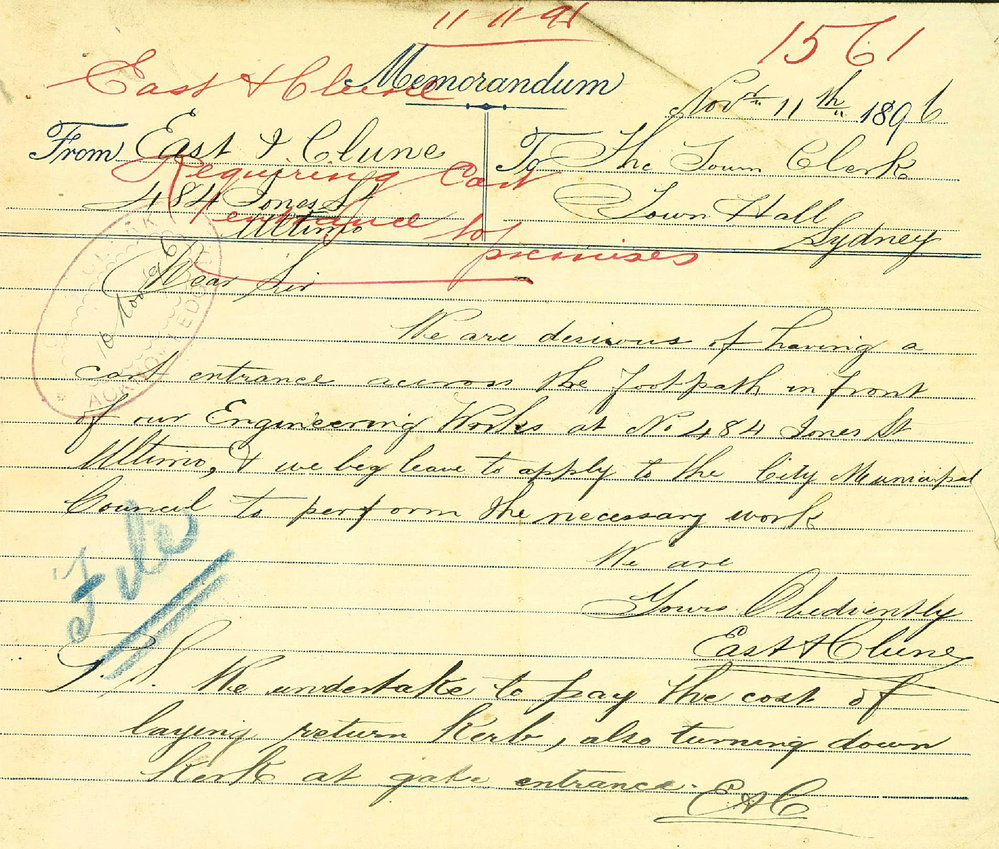 11-11-96
1561
East & Clune
Memorandum
Novr 11th 1896
From East & Clune
To The Town Clerk
Requiring Cart
484 Jones St
Town Hall
entrance to
Ultimo
Sydney
premises
Dear Sir
10 Nov 96
We are desirous of having a
cart entrance accross the footpath in front
of our Engineering Works at No 484 Jones St
Ultimo, & we beg leave to apply to the City Municipal
Council to perform the necessary work
We are
File
Yours Obediently
East & Clune
P.S. We undertake to pay the cost of
laying return Kerb, also turning down
Kerb at gate entrance.
E & C